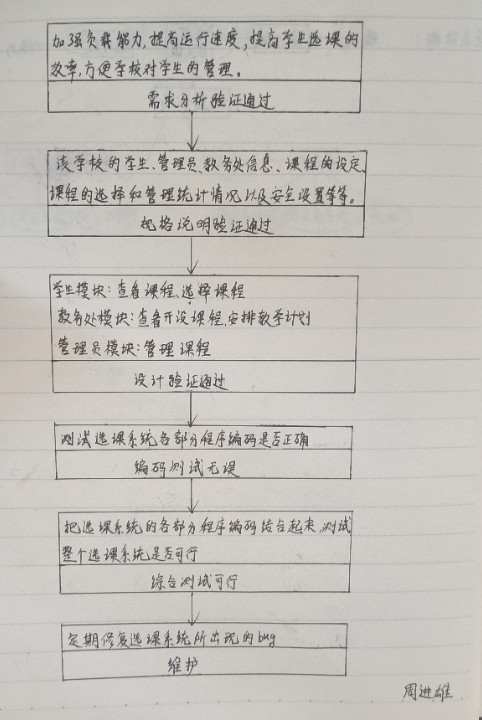 加强负载能力,提高运行速度,提高学生选课的
效率,方便学校对学生的管理。
需求分析验证通过
该学校的学生、管理员、教务处信息、课程的设定、
课程的选择和管理统计情况以及安全设置等等。
规格说明验证通过
学生模块:查看课程、选择课程
教务处模块:查看开设课程、安排教学计划
管理员模块:管理课程
设计验证通过
测试选课系统各部分程序编码是否正确
编码测试无误
把选课系统的各部分程序编码结合起来,测试
整个选课系统是否可行
综合测试可行
定期修复选课系统所出现的bug
维护
周进雄